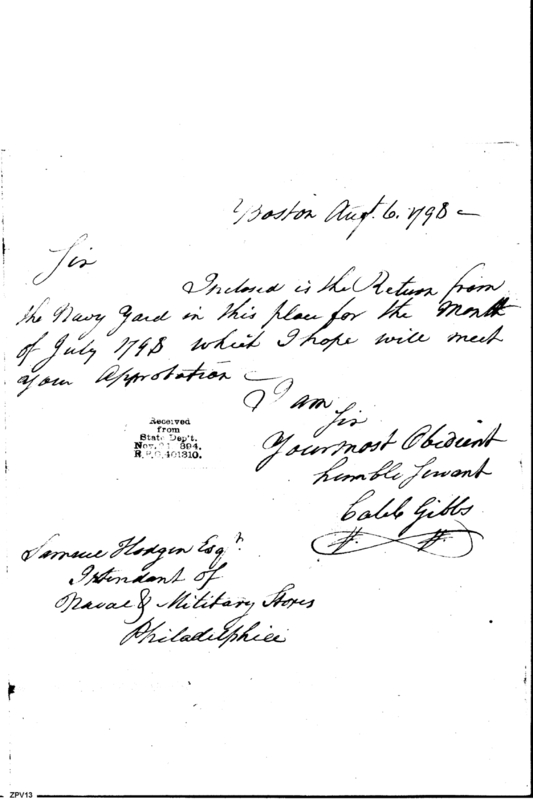 Boston Augt. 6. 1798 —
Sir
Inclosed is the Return from
the Navy Yard in this place for the Month
of July 1798 which I hope will meet
your Approbation —
I am
Sir
Your most Obedient
humble Servant
Caleb Gibbs
Received
from
State Dep't.
Nov. 1894.
R.P.O. 401310.
Samuel Hodgdon Esqr.
Intendant of
Naval & Military Stores
Philadelphia
ZPV13